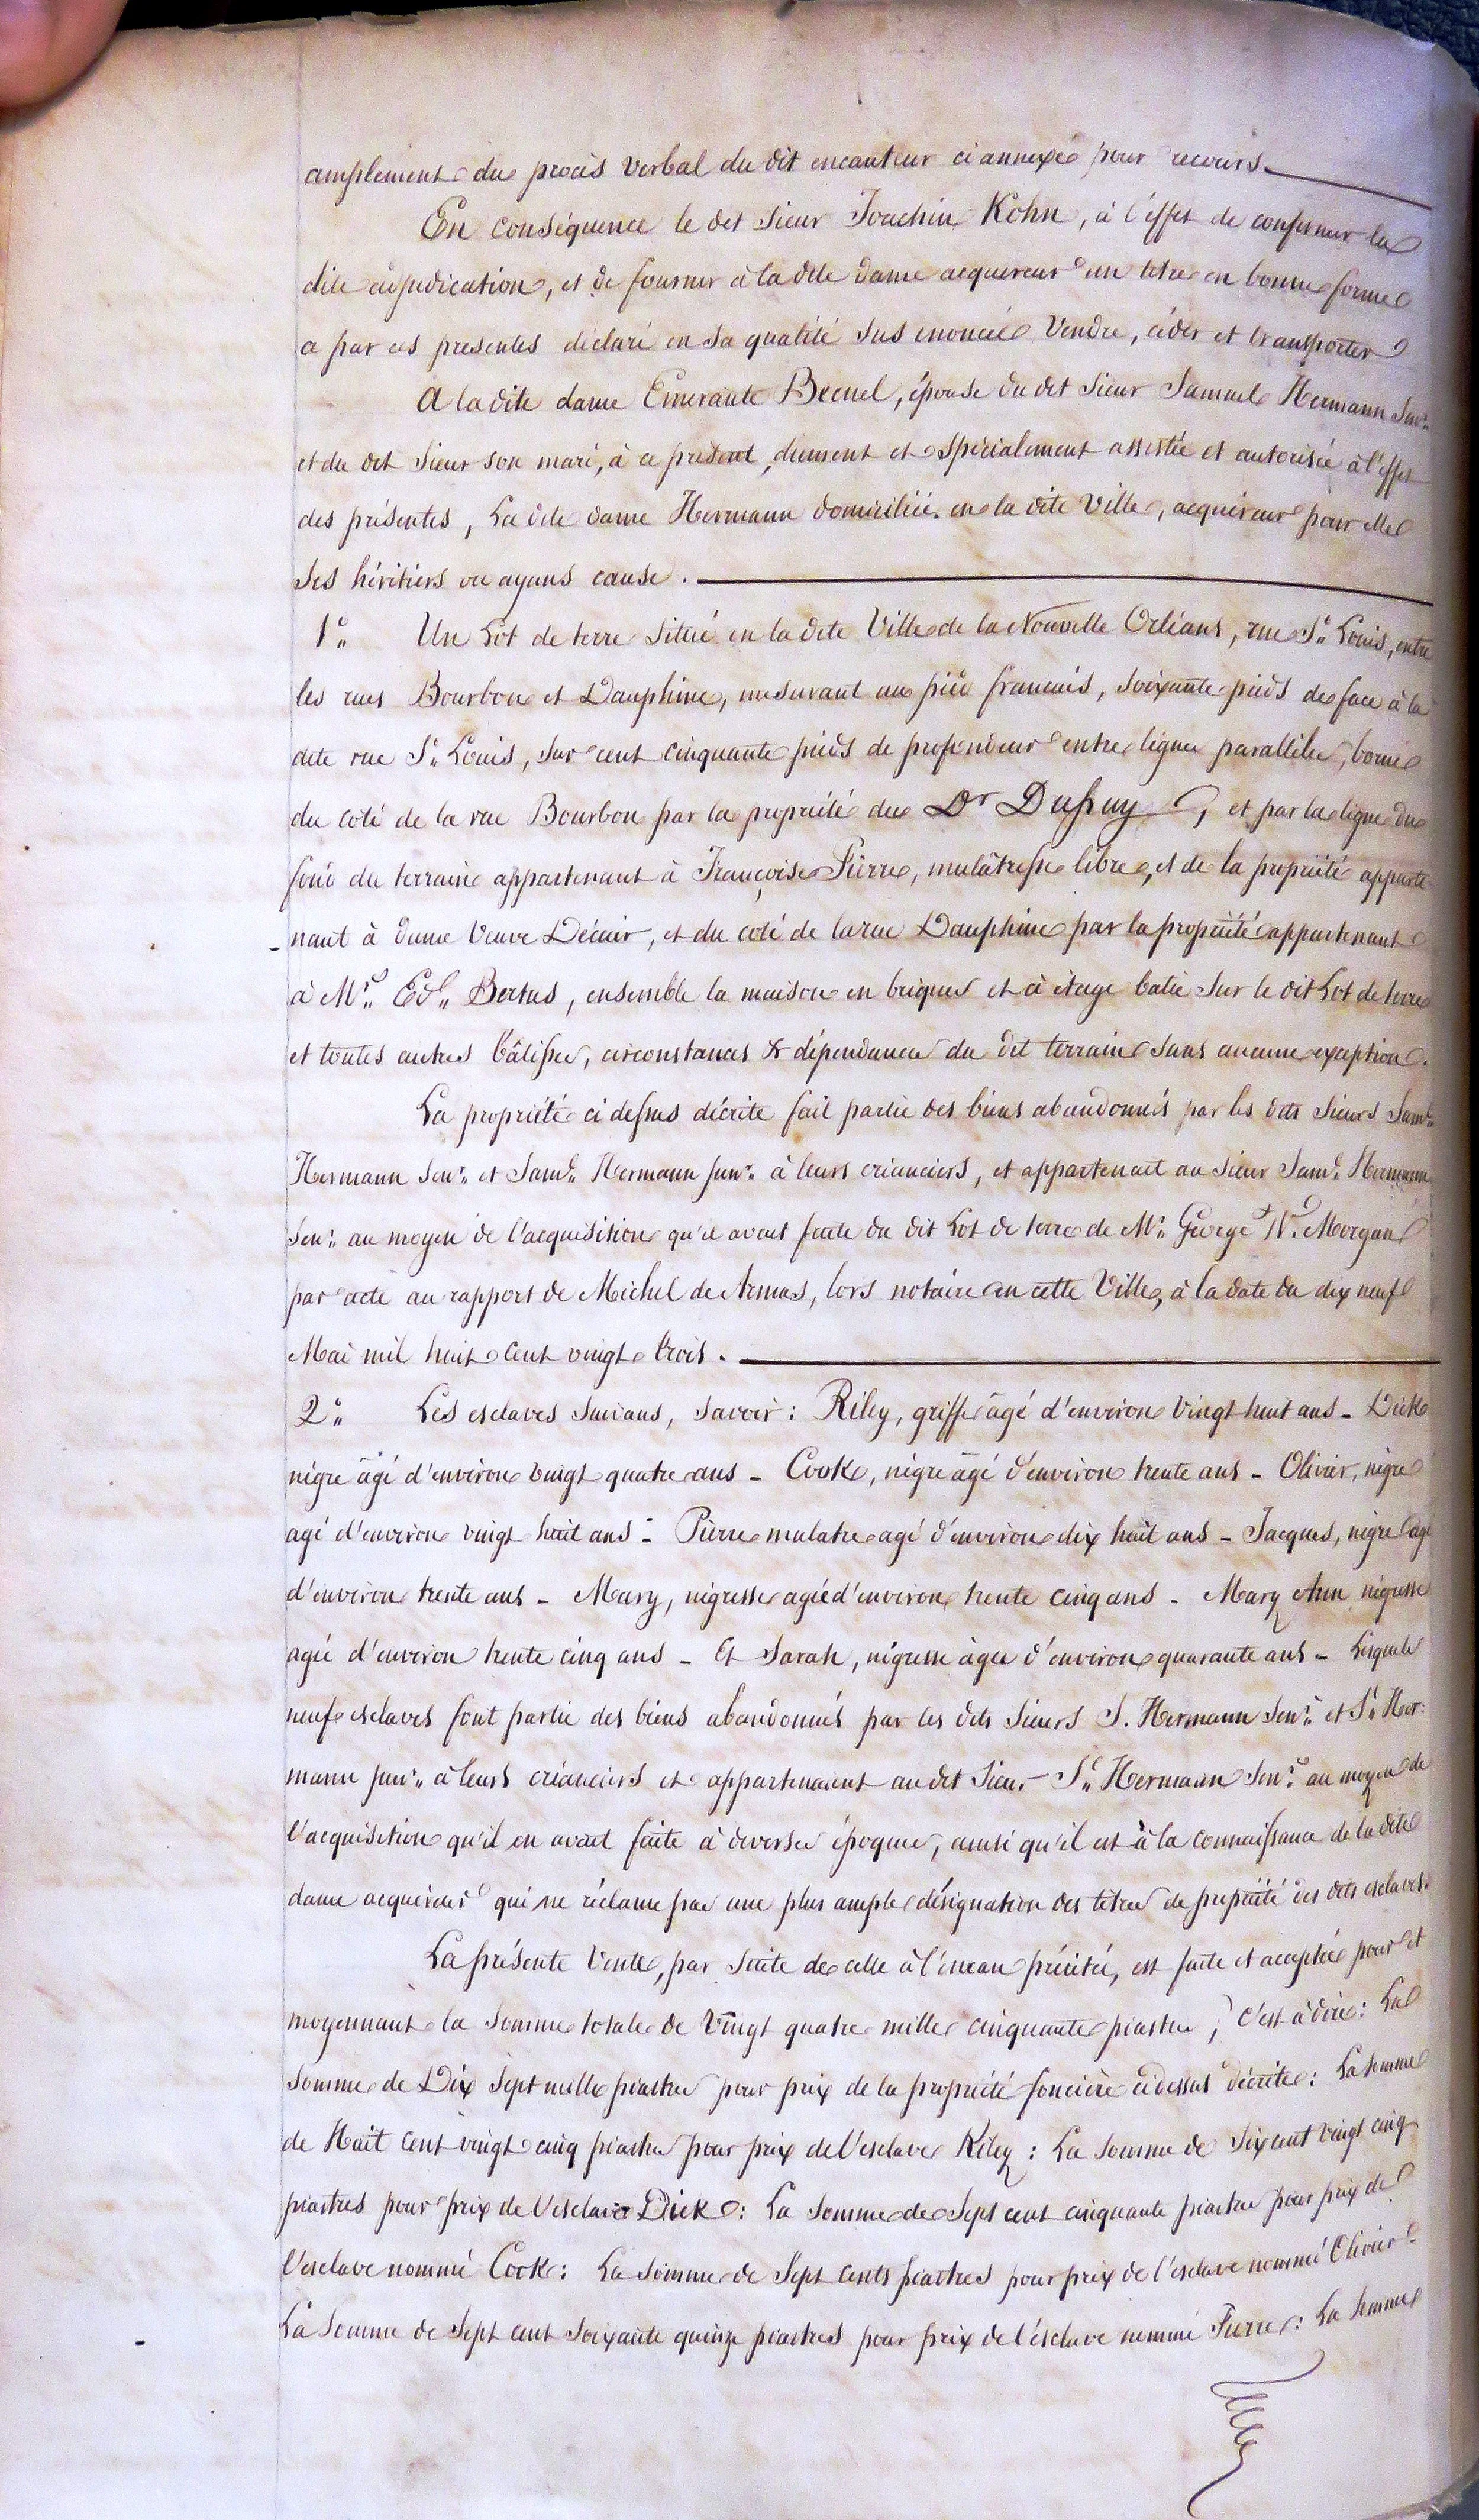 amplement du procès verbal du dit encanteur ci annexé pour recours.
En conséquence le dit Sieur Joachim Kohn, à l'effet de confirmer la
dite adjudication, et de fournir à la dite dame acquereur un titre en bonne forme
a par ces presentes déclaré en sa qualité sus enoncée Vendre, céder et transporter
A la dite dame Emerante Becnel, épouse du dit Sieur Samuel Hermann Senr.
et du dit Sieur son mari, à ce présent, duement et spécialement assistée et autorisée à l'effet
des présentes, La dite dame Hermann domiciliée en la dite Ville, acquéreur pour elle
Ses héritiers ou ayans cause.
1o. Un Lot de terre Situé en la dite Ville de la Nouvelle Orléans, rue St. Louis, entre
les rues Bourbon et Dauphine, mesurant au pied francais, soixante pieds de face à la
dite rue St. Louis, sur cent cinquante pieds de profondeur entre lignes parallèles, borné
du coté de la rue Bourbon par la propriété du Dr Dupuy, et par la ligne du
fond du terrain appartenant à Françoise Pierre, mulâtresse libre, et de la propriété apparte
nant à dame Veuve Décuir, et du coté de la rue Dauphine par la propriété appartenant
à Mr. Ed. Bertus, ensemble la maison en briques et à étage batie sur le dit Lot de terre
et toutes autres bâtisses, circonstances & dépendances du dit terrain sans aucune exception.
La propriété ci dessus décrite fait partie des biens abandonnés par les dits Sieurs Saml.
Hermann Senr. et Saml. Hermann Junr. à leurs créanciers, et appartenait au Sieur Saml. Hermann
Senr. au moyen de l'acquisition qu'il avait faite du dit Lot de terre de Mr. George W. Morgan
par acte au rapport de Michel de Armas, lors notaire en cette Ville, à la date du dix neuf
Mai mil huit cent vingt trois.
2o. Les esclaves suivans, savoir: Riley, griffe âgé d'environ Vingt huit ans - Dick
nègre âgé d'environ vingt quatre ans - Cook, nègre âgé d'environ trente ans - Olivier, nègre
agé d'environ vingt huit ans - Pierre mulatre agé d'environ dix huit ans - Jacques, nègre âgé
d'environ trente ans - Mary, négresse agée d'environ trente cinq ans - Mary Ann négresse
agée d'environ trente cinq ans - Et Sarah, négresse âgée d'environ quarante ans - Lesquels
neuf esclaves font partie des biens abandonnés par les dits Sieurs S. Hermann Senr. et S. Her-
mann Junr. à leurs créanciers et appartenaient au dit Sieur S. Hermann Senr. au moyen de
l'acquisition qu'il en avait faite à diverses époques, ainsi qu'il est à la connaissance de la dite
dame acquéreur qui ne réclame pas une plus ample désignation des titres de propriété des dits esclaves.
La présente Vente, par suite de celle à l'encan précitée, est faite et acceptée pour et
moyennant la somme totale de Vingt quatre mille cinquante piastres; c'est à dire: La
Somme de Dix Sept mille piastres pour prix de la propriété foncière cidessus décrite: La Somme
de Huit cent vingt cinq piastres pour prix de l'esclave Riley: La Somme de Six cent vingt cinq
piastres pour prix de l'esclave Dick: La Somme de Sept cent cinquante piastres pour prix de
l'esclave nommé Cook: La Somme de Sept cents piastres pour prix de l'esclave nommé Olivier:
La Somme de Sept cent soixante quinze piastres pour prix de l'ésclave nommé Pierre: La Somme